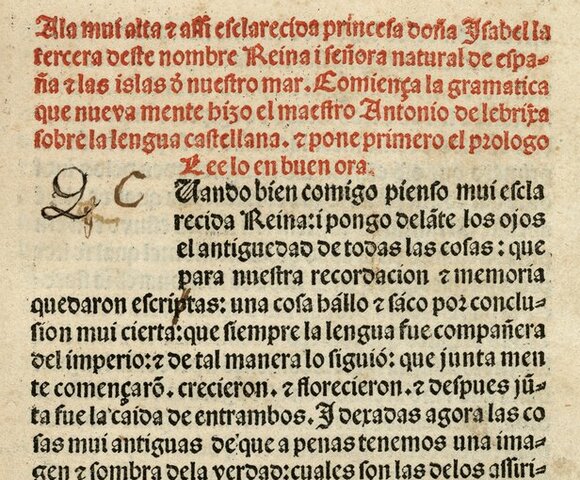 A la mui alta ⁊ assi esclarecida princesa doña Isabel la
tercera deste nombre Reina i señora natural de espa-
ña ⁊ las islas ð nuestro mar. Comiença la gramatica
que nueva mente hizo el maestro Antonio de lebrixa
sobre la lengua castellana. ⁊ pone primero el prologo
Lee lo en buen ora.
Q C Uando bien comigo pienso mui escla
recida Reina: i pongo delãte los ojos
el antiguedad de todas las cosas: que
para nuestra recordacion ⁊ memoria
quedaron escriptas: una cosa hállo ⁊ sáco por conclu-
sion mui cierta: que siempre la lengua fue compañera
del imperio: ⁊ de tal manera lo siguió: que junta men
te començarõ. crecieron. ⁊ florecieron. ⁊ despues jũ-
ta fue la caida de entrambos. I dexadas agora las co
sas mui antiguas de que a penas tenemos una ima-
gen ⁊ sombra dela verdad: cuales son las delos assiri-